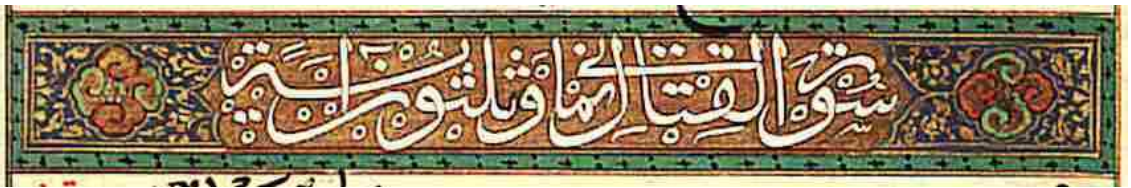 سورة القتال ثمان وثلثون آية